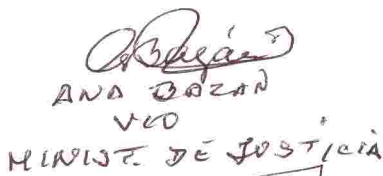 ANA BAZAN
VCO
MINIST. DE JUSTICIA